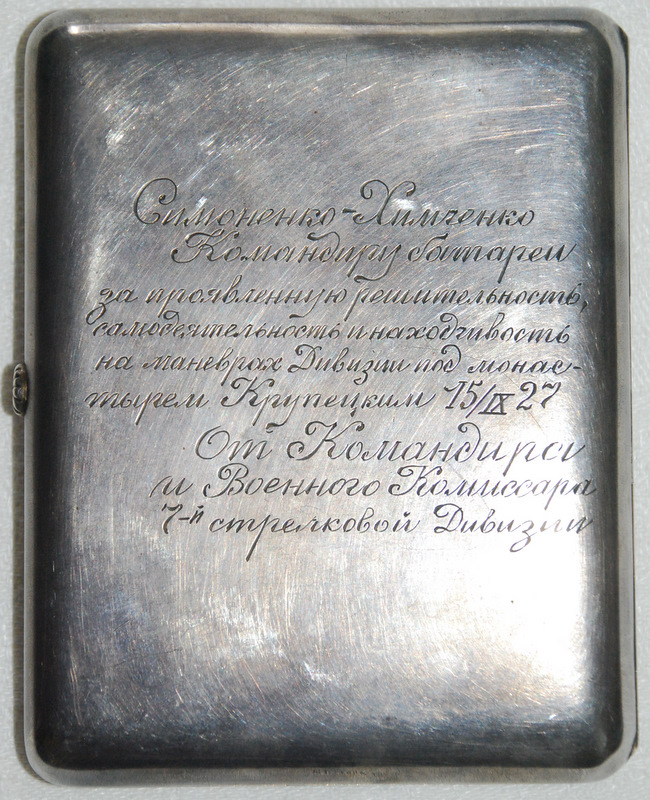 Симоненко-Химченко
Командиру батареи
за проявленную решительность,
самодеятельность и находчивость
на маневрах Дивизии под монас-
тырем Крупецким 15/IX 27
От Командира
и Военного Комиссара
7-й стрелковой Дивизии